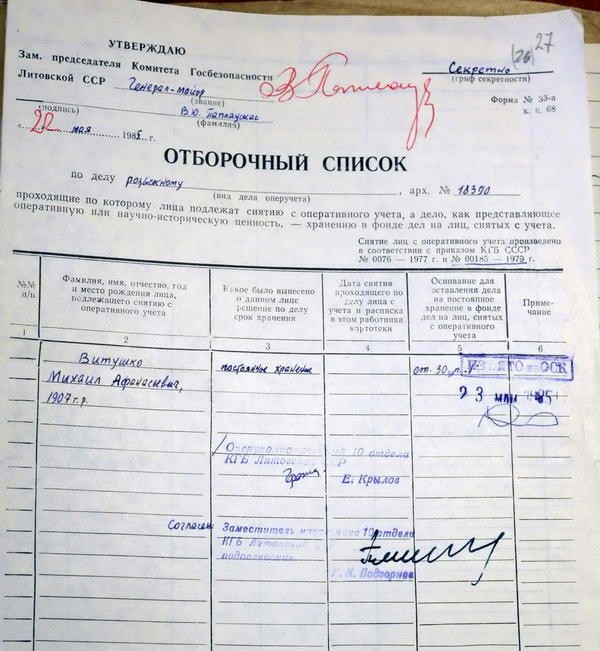 (26) 27
УТВЕРЖДАЮ
Зам. председателя Комитета Госбезопасности
Литовской ССР Генерал-майор
(звание)
В.Ю. Паплаускас
(подпись) (фамилия)
« 22 » мая 1985 г.
Секретно
(гриф секретности)
Форма № 33-а
к. п. 68
ОТБОРОЧНЫЙ СПИСОК
по делу розыскному , арх. № 18390
(вид дела оперучета)
проходящие по которому лица подлежат снятию с оперативного учета, а дело, как представляющее
оперативную или научно-историческую ценность, — хранению в фонде дел на лиц, снятых с учета.
Снятие лиц с оперативного учета произведено
в соответствии с приказом КГБ СССР
№ 0076 — 1977 г. и № 00185 — 1979 г.
№№ п/п
Фамилия, имя, отчество, год
и место рождения лица,
подлежащего снятию с
оперативного учета
Какое было вынесено
о данном лице
решение по делу
срок хранения
Дата снятия
проходящего по
делу лица с
учета и расписка
в этом работника
картотеки
Основание для
оставления дела
на постоянное
хранение в фонде
дел на лиц, снятых
с оперативного
учета
Приме-
чание
1 2 3 4 5 6
Витушко
Михаил Афанасьевич,
1907 г.р.
постоянное хранение
ст. 30, п.
ИЗЪЯТО из ОСК
23 МАЙ 1985
Оперуполномоченный 10 отдела
КГБ Литовской ССР
Е. Крылов
Согласен: Заместитель начальника 10 отдела
КГБ Литовской
подполковник
Г. Н. Подгорнов